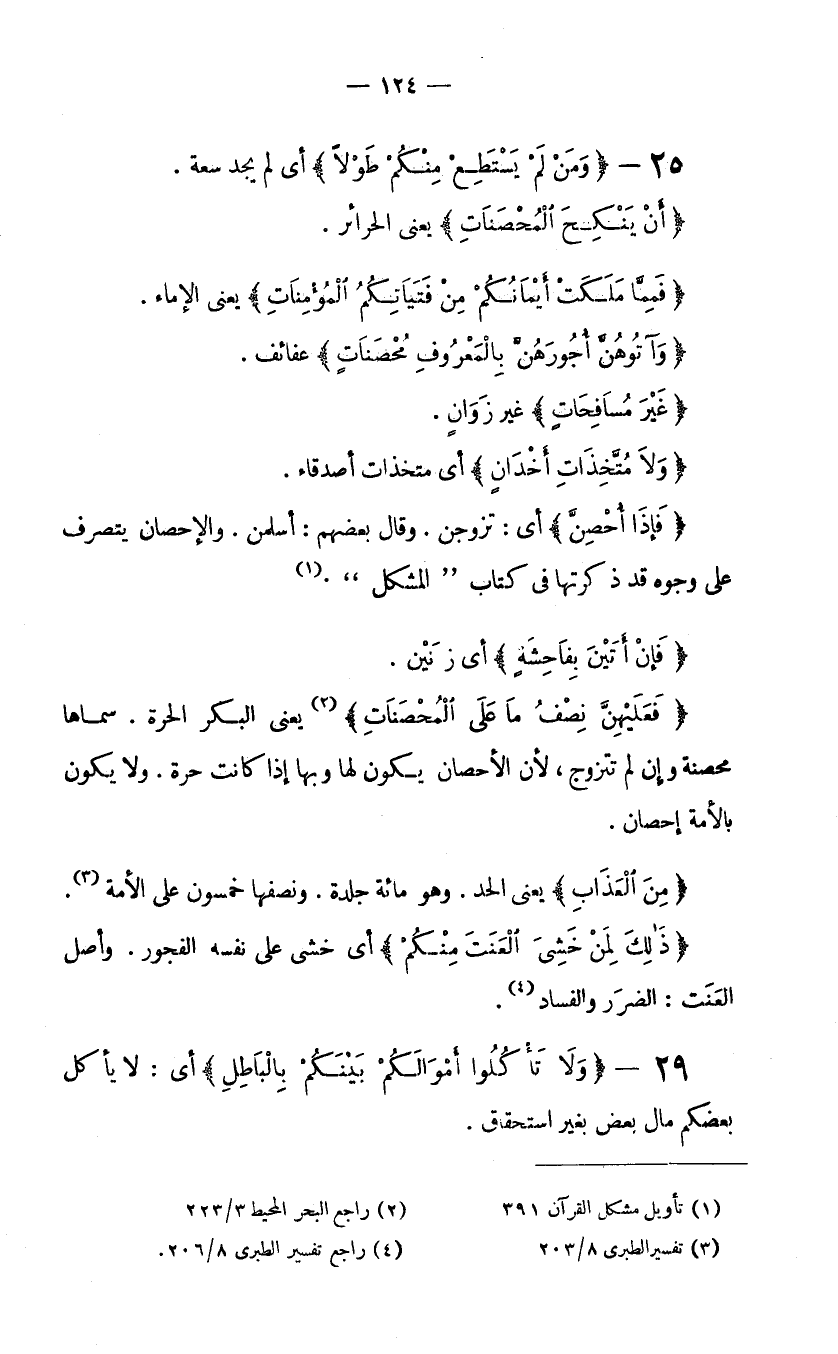 — ١٢٤ —
٢٥ — ﴿ وَمَنْ لَمْ يَسْتَطِعْ مِنْكُمْ طَوْلاً ﴾ أى لم يجد سعة .
﴿ أَنْ يَنْكِحَ ٱلْمُحْصَنَاتِ ﴾ يعنى الحرائر .
﴿ فَمِمَّا مَلَكَتْ أَيْمَانُكُمْ مِنْ فَتَيَاتِكُمُ ٱلْمُؤْمِنَاتِ ﴾ يعنى الإماء .
﴿ وَآتُوهُنَّ أُجُورَهُنَّ بِالْمَعْرُوفِ مُحْصَنَاتٍ ﴾ عفائف .
﴿ غَيْرَ مُسَافِحَاتٍ ﴾ غير زَوَانٍ .
﴿ وَلاَ مُتَّخِذَاتِ أَخْدَانٍ ﴾ أى متخذات أصدقاء .
﴿ فَإِذَا أُحْصِنَّ ﴾ أى : تزوجن . وقال بعضهم : أسلمن . والإحصان يتصرف
على وجوه قد ذكرتها فى كتاب ” المشكل “ .(١)
﴿ فَإِنْ أَتَيْنَ بِفَاحِشَةٍ ﴾ أى زَنَيْن .
﴿ فَعَلَيْهِنَّ نِصْفُ مَا عَلَى ٱلْمُحْصَنَاتِ ﴾ (٢) يعنى البكر الحرة . سماها
محصنة وإن لم تتزوج ، لأن الأحصان يكون لها وبها إذا كانت حرة . ولا يكون
بالأمة إحصان .
﴿ مِنَ ٱلْعَذَابِ ﴾ يعنى الحد . وهو مائة جلدة . ونصفها خمسون على الأمة (٣) .
﴿ ذَٰلِكَ لِمَنْ خَشِىَ ٱلْعَنَتَ مِنْكُمْ ﴾ أى خشى على نفسه الفجور . وأصل
العَنَت : الضرَر والفساد (٤) .
٢٩ — ﴿ وَلَا تَأْكُلُوا أَمْوَالَكُمْ بَيْنَكُمْ بِالْبَاطِلِ ﴾ أى : لا يأكل
بعضكم مال بعض بغير استحقاق .
(١) تأويل مشكل القرآن ٣٩١ (٢) راجع البحر المحيط ٢٢٣/٣
(٣) تفسير الطبرى ٢٠٣/٨ (٤) راجع تفسير الطبرى ٢٠٦/٨ .